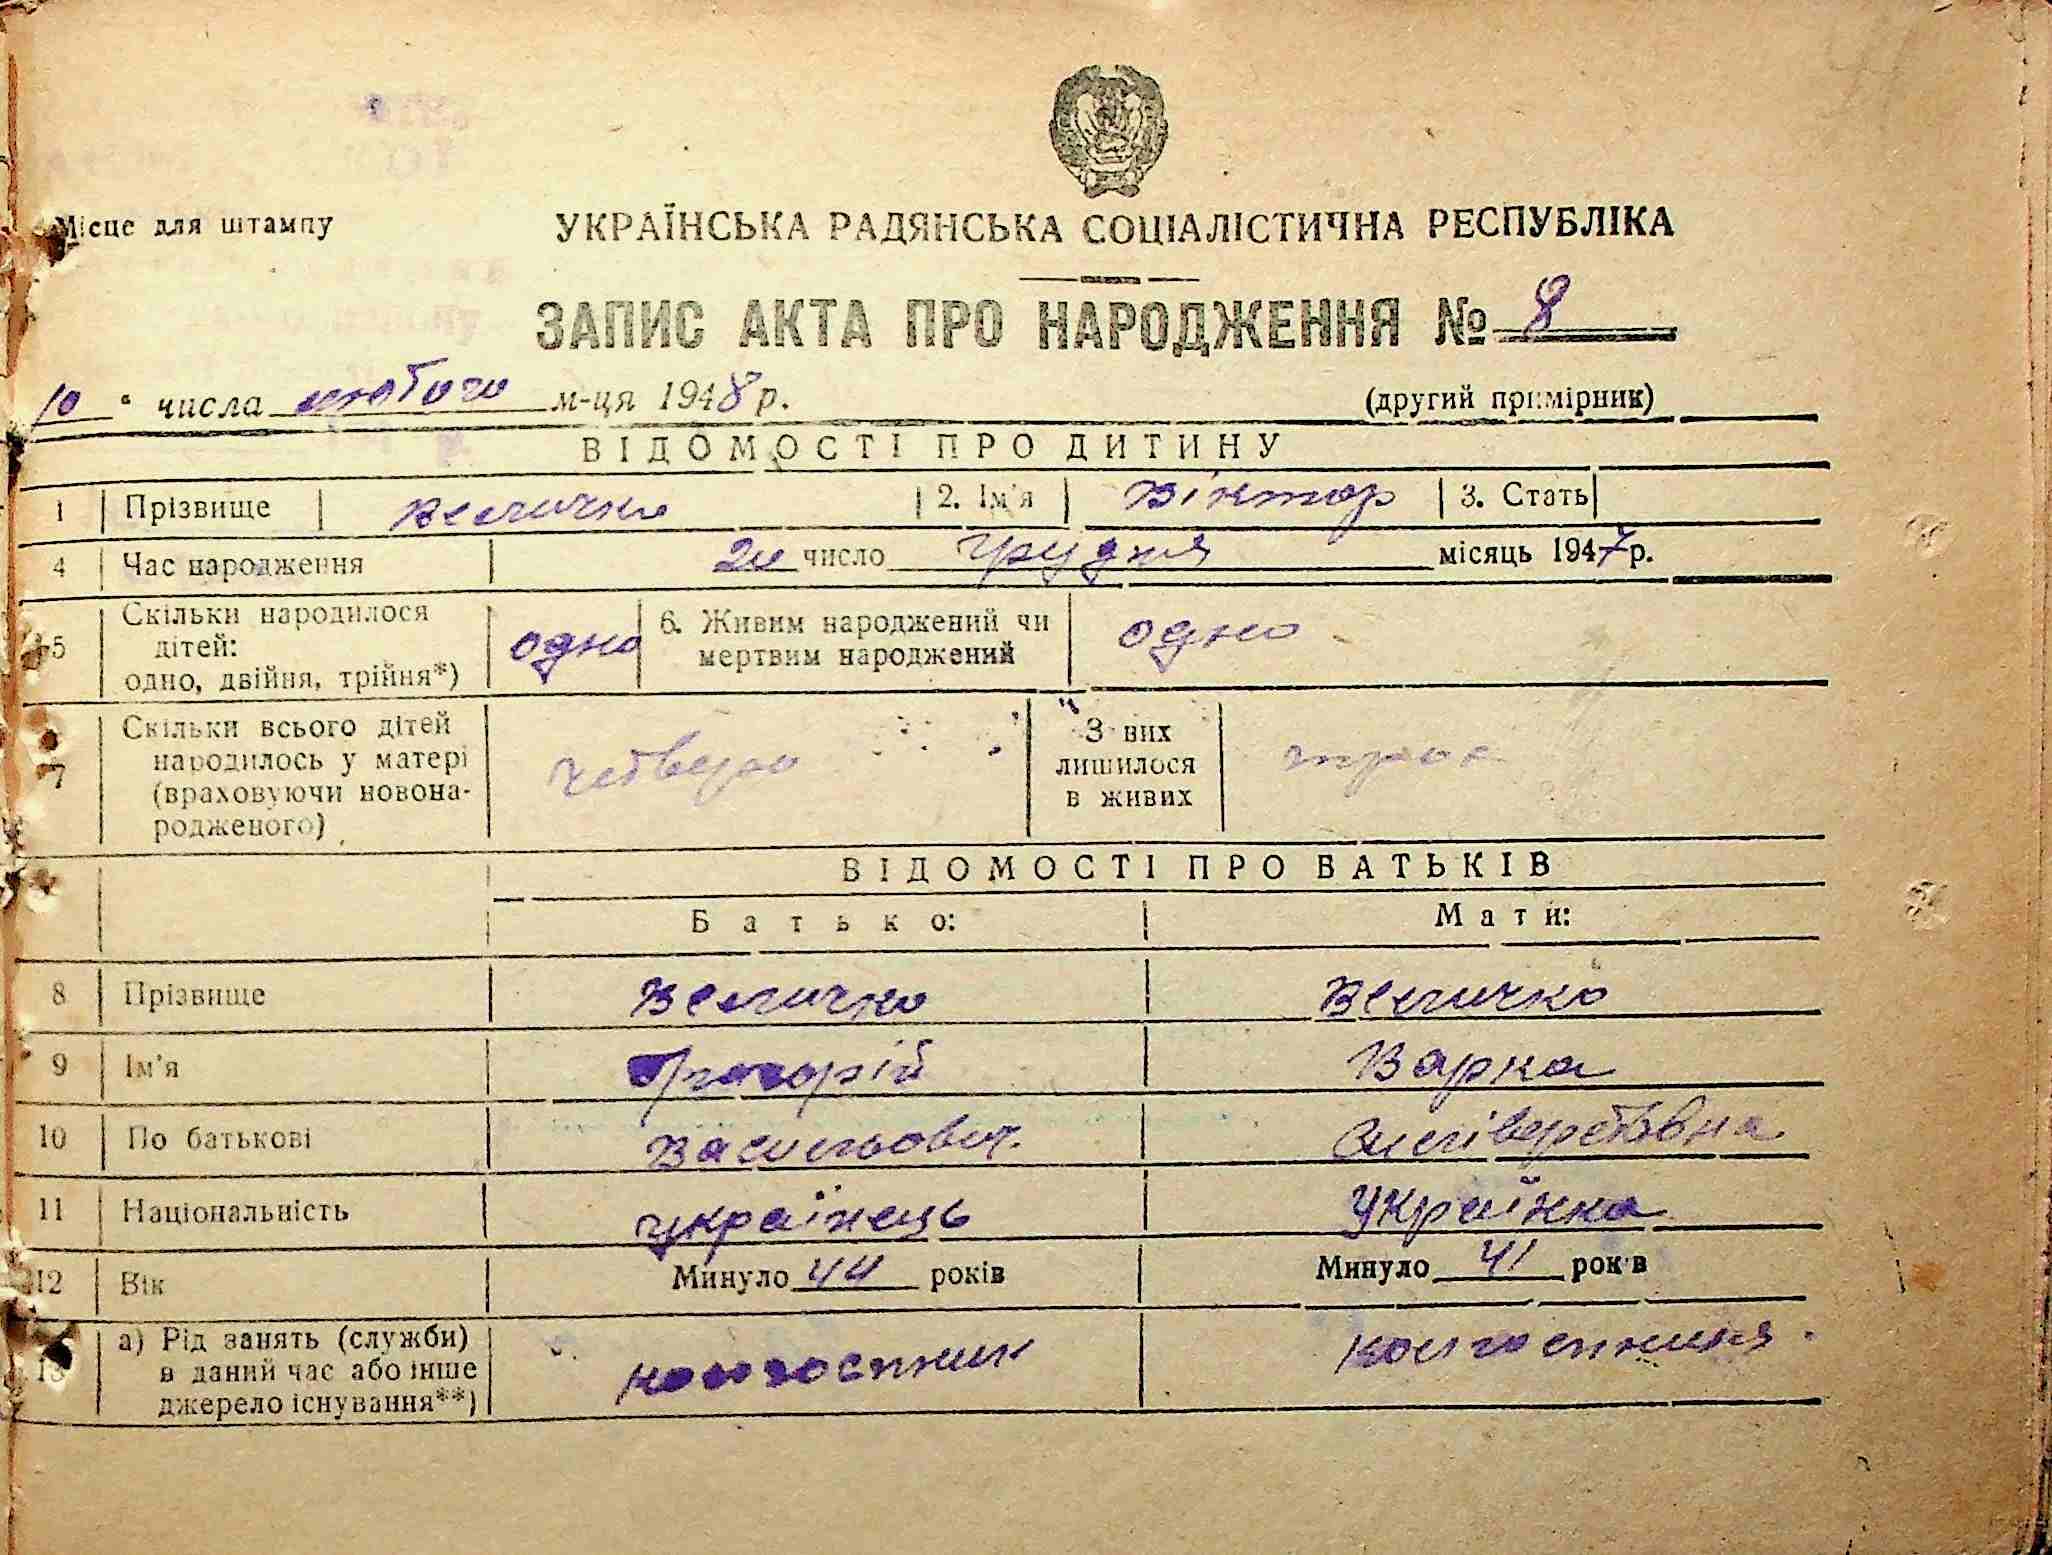 Місце для штампу
УКРАЇНСЬКА РАДЯНСЬКА СОЦІАЛІСТИЧНА РЕСПУБЛІКА
ЗАПИС АКТА ПРО НАРОДЖЕННЯ № 8
10 " числа лютого м-ця 1948 р.
(другий примірник)
ВІДОМОСТІ ПРО ДИТИНУ
1 Прізвище Величко 2. Ім'я Віктор 3. Стать
4 Час народження число грудня місяць 1947 р.
5 Скільки народилося дітей: одно, двійня, трійня*) одно 6. Живим народжений чи мертвим народжений одно
7 Скільки всього дітей народилось у матері (враховуючи новонародженого) четверо З них лишилося в живих троє
ВІДОМОСТІ ПРО БАТЬКІВ
Батько: Мати:
8 Прізвище Величко Величко
9 Ім'я Григорій Варка
10 По батькові Васильович Силіверстовна
11 Національність українець Українка
12 Вік Минуло 44 років Минуло 41 років
13 а) Рід занять (служби) в даний час або інше джерело існування**) колгоспник колгоспниця